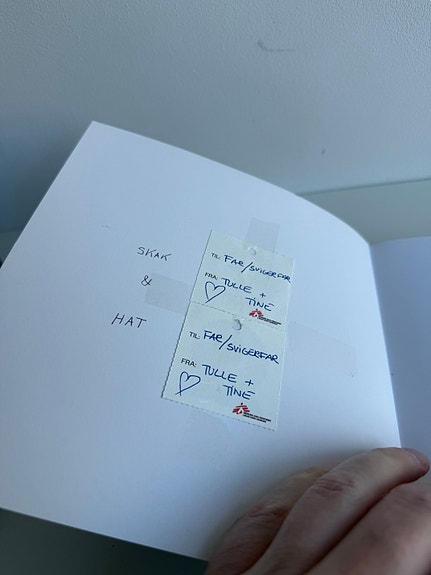 SKAK
&
HAT
TIL: FAR/SVIGERFAR
FRA: TULLE +
TINE
TIL: FAR/SVIGERFAR
FRA: TULLE +
TINE